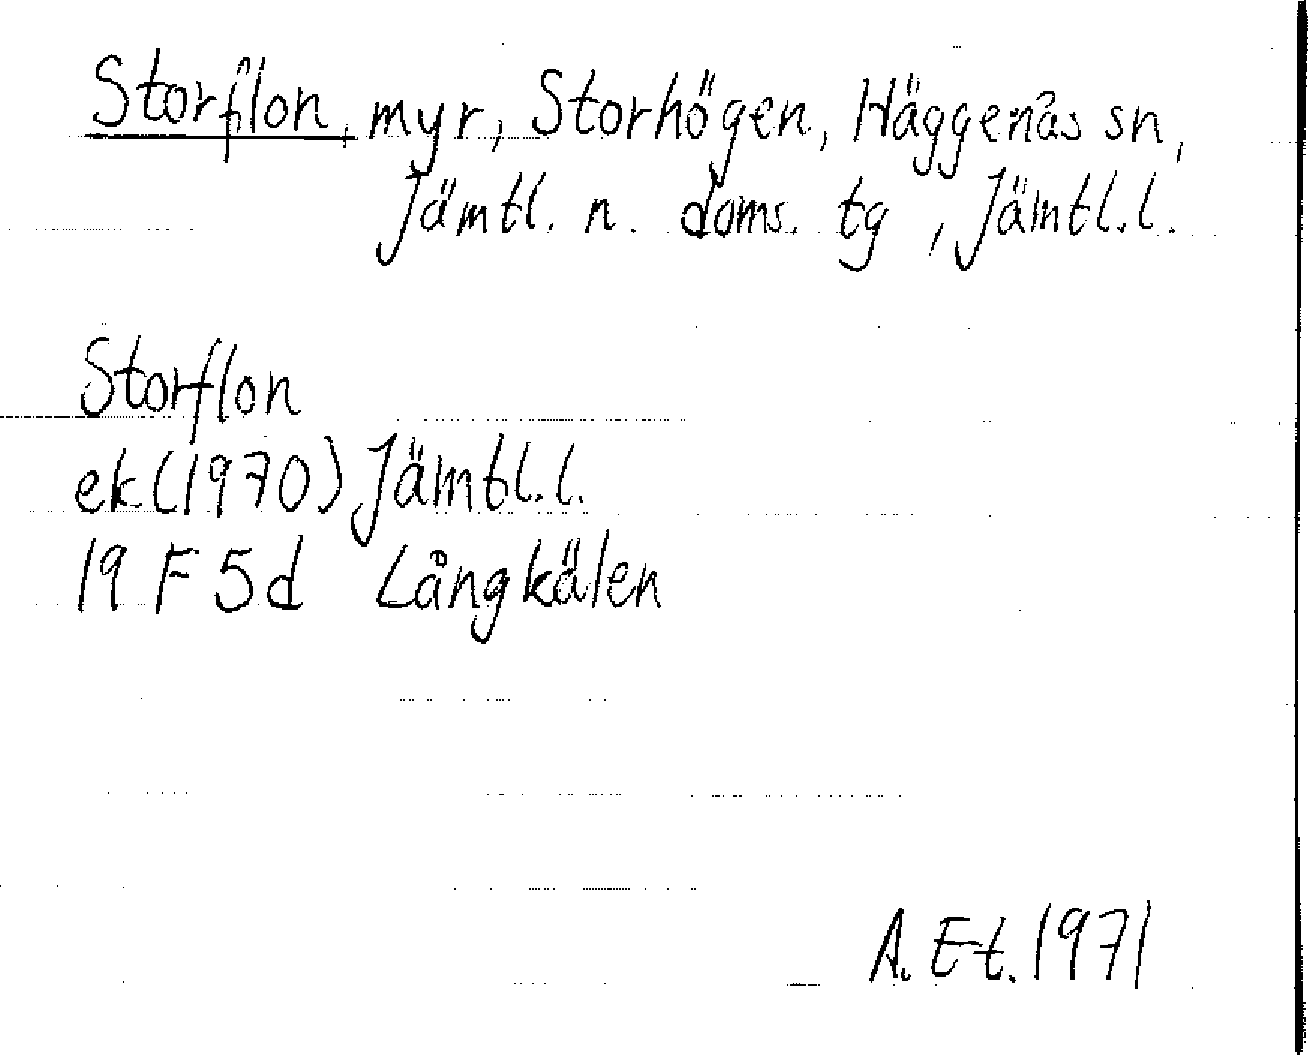 Storflon, myr, Storhögen, Häggenås sn,
Jämtl. n. doms. tg, Jämtl.l.
Storflon
ek (1970) Jämtl.l.
19 F 5d Långkälen
A. Et. 1971